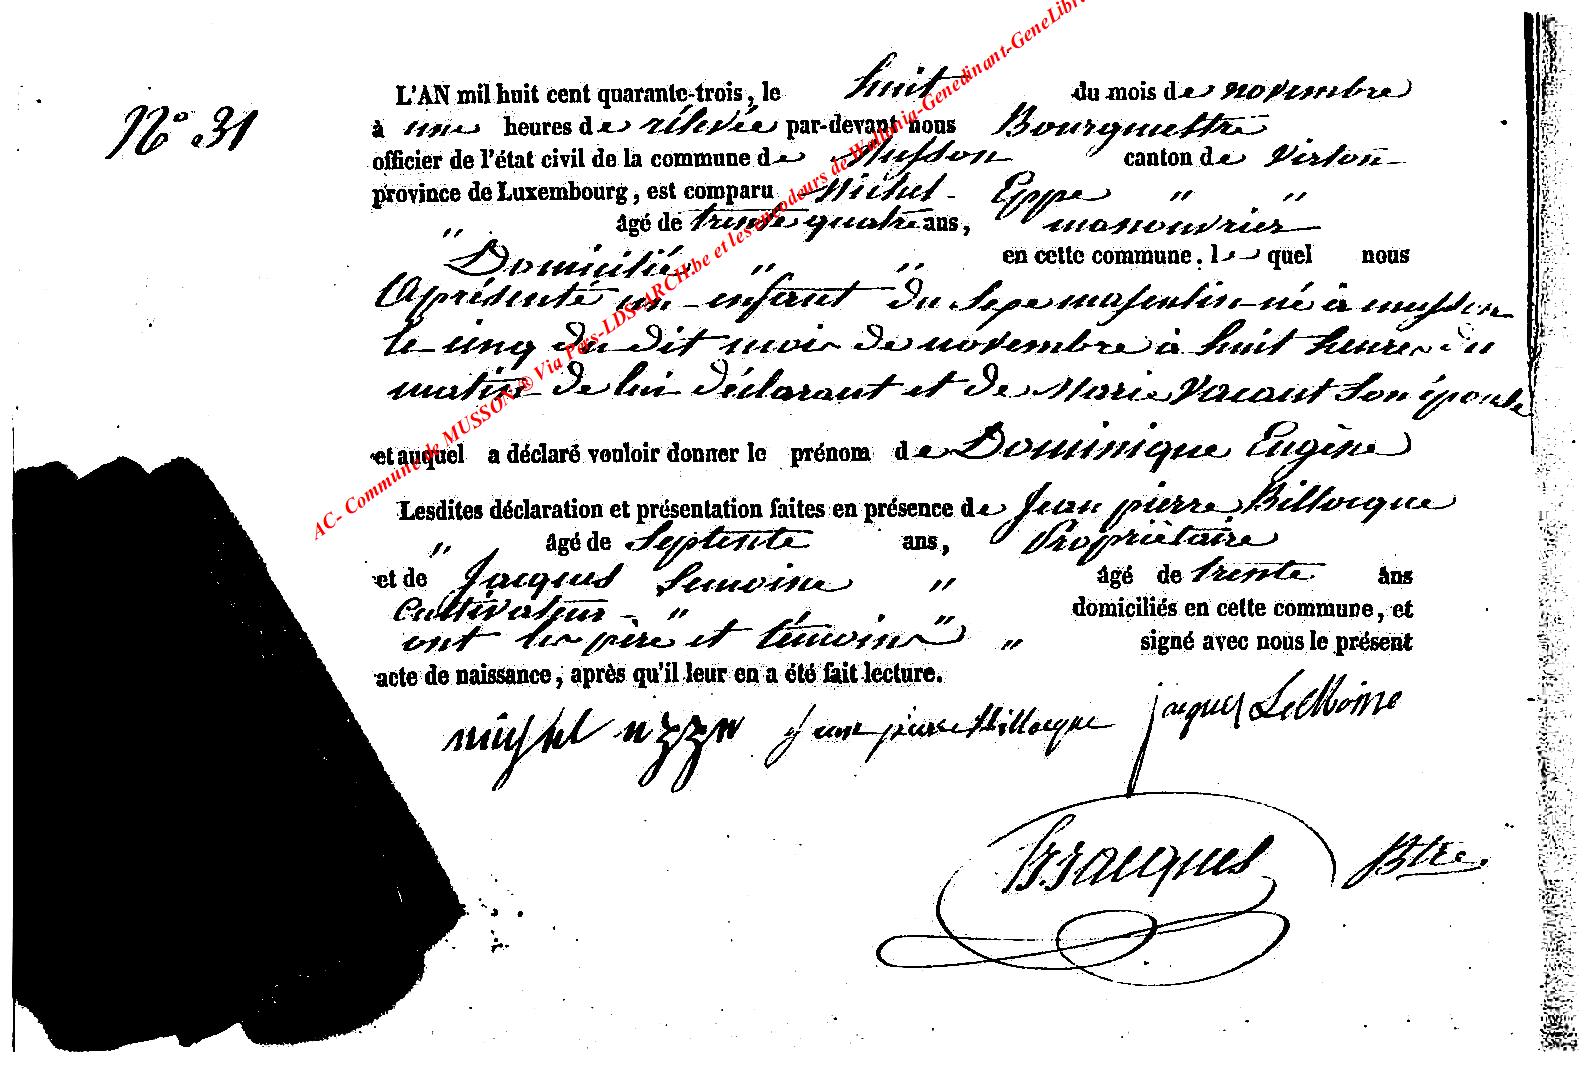 N° 31
L'AN mil huit cent quarante-trois, le huit du mois de novembre
à une heures de rélevée par-devant nous Bourgmestre
officier de l'état civil de la commune de Musson canton de Virton
province de Luxembourg, est comparu Michel Eppe " "
" âgé de trente quatre ans, manouvrier
Domicilié " " en cette commune, le quel nous
A présenté un enfant du sexe masculin né à musson
le cinq du dit mois de novembre à huit heures du
matin de lui déclarant et de Marie Vacant son épouse
et auquel a déclaré vouloir donner le prénom de Dominique Eugène
Lesdites déclaration et présentation faites en présence de Jean pierre Billocque
" âgé de Septente ans, Propriètaire
et de Jacques Lemoine " âgé de trente ans
Cultivateur " " domiciliés en cette commune, et
ont les père et témoins " signé avec nous le présent
acte de naissance, après qu'il leur en a été fait lecture.
michel eppe Jean pierre Billocque jacques LeMoine
Jacques Btre
AC- Commune de MUSSON ® Via Pers-LDS-ARCH.be et les encodeurs de Wallonia-Genedinant-GeneLibr